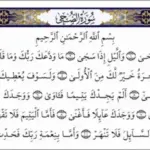 سُورَةُ الضُّحَى
بِسْمِ اللَّهِ الرَّحْمَٰنِ الرَّحِيمِ
وَالَّيْلِ إِذَا سَجَىٰ مَا وَدَّعَكَ رَبُّكَ وَمَا
خَيْرٌ لَّكَ مِنَ الْأُولَىٰ وَلَسَوْفَ يُعْطِيكَ
أَلَمْ يَجِدْكَ يَتِيمًا
وَوَجَدَكَ عَائِلًا فَأَغْنَىٰ فَأَمَّا الْيَتِيمَ فَلَا
السَّائِلَ فَلَا تَنْهَرْ وَأَمَّا بِنِعْمَةِ رَبِّكَ فَحَدِّثْ